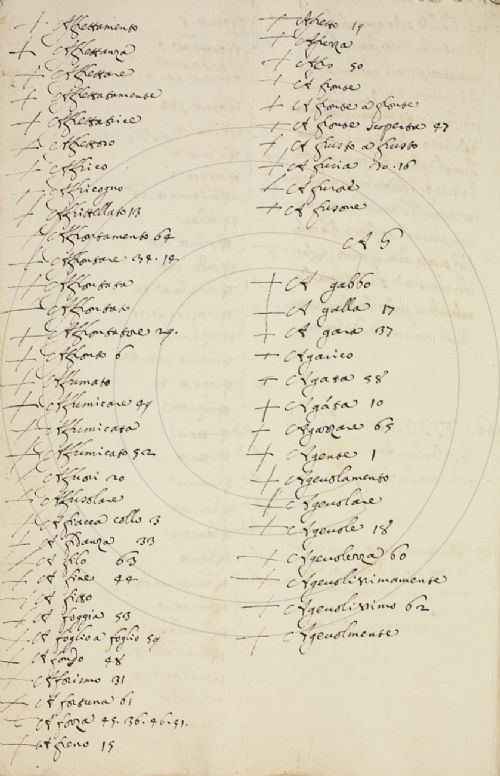 Affettamento
Affettanza
Affettare
Affettatamente
Affettatrice
Affettoro
Affrico
Affricogno
Affrittellato 13
Affrontamento 64
Affrontare 34. 14.
Affrontata
Affrontato
Affrontatore 29.
Affronto 6
Affumato
Affumicare 49
Affumicata
Affumicato 52
Affuori 20
Affusolare
A fiacca collo 3
A fidanza 33
A filo 63
A fine 44
A fitto
A foggia 53
A foglio a foglio 59
A fondo 48
Aforismo 31
A fortuna 61
A forza 45. 36. 46. 51.
A freno 15
Afretto 14
Afrezza
Afro 50
A fronte
A fronte a fronte
A fronte scoperta 47
A frusto a frusto
A furia 30. 16
A furore
A fusone
A G
A gabbo
A galla 17
A gara 37
Agarico
Agata 58
Agáta 10
Agazzare 65
Agente 1
Agevolamento
Agevolare
Agevole 18
Agevolezza 60
Agevolissimamente
Agevolissimo 62
Agevolmente